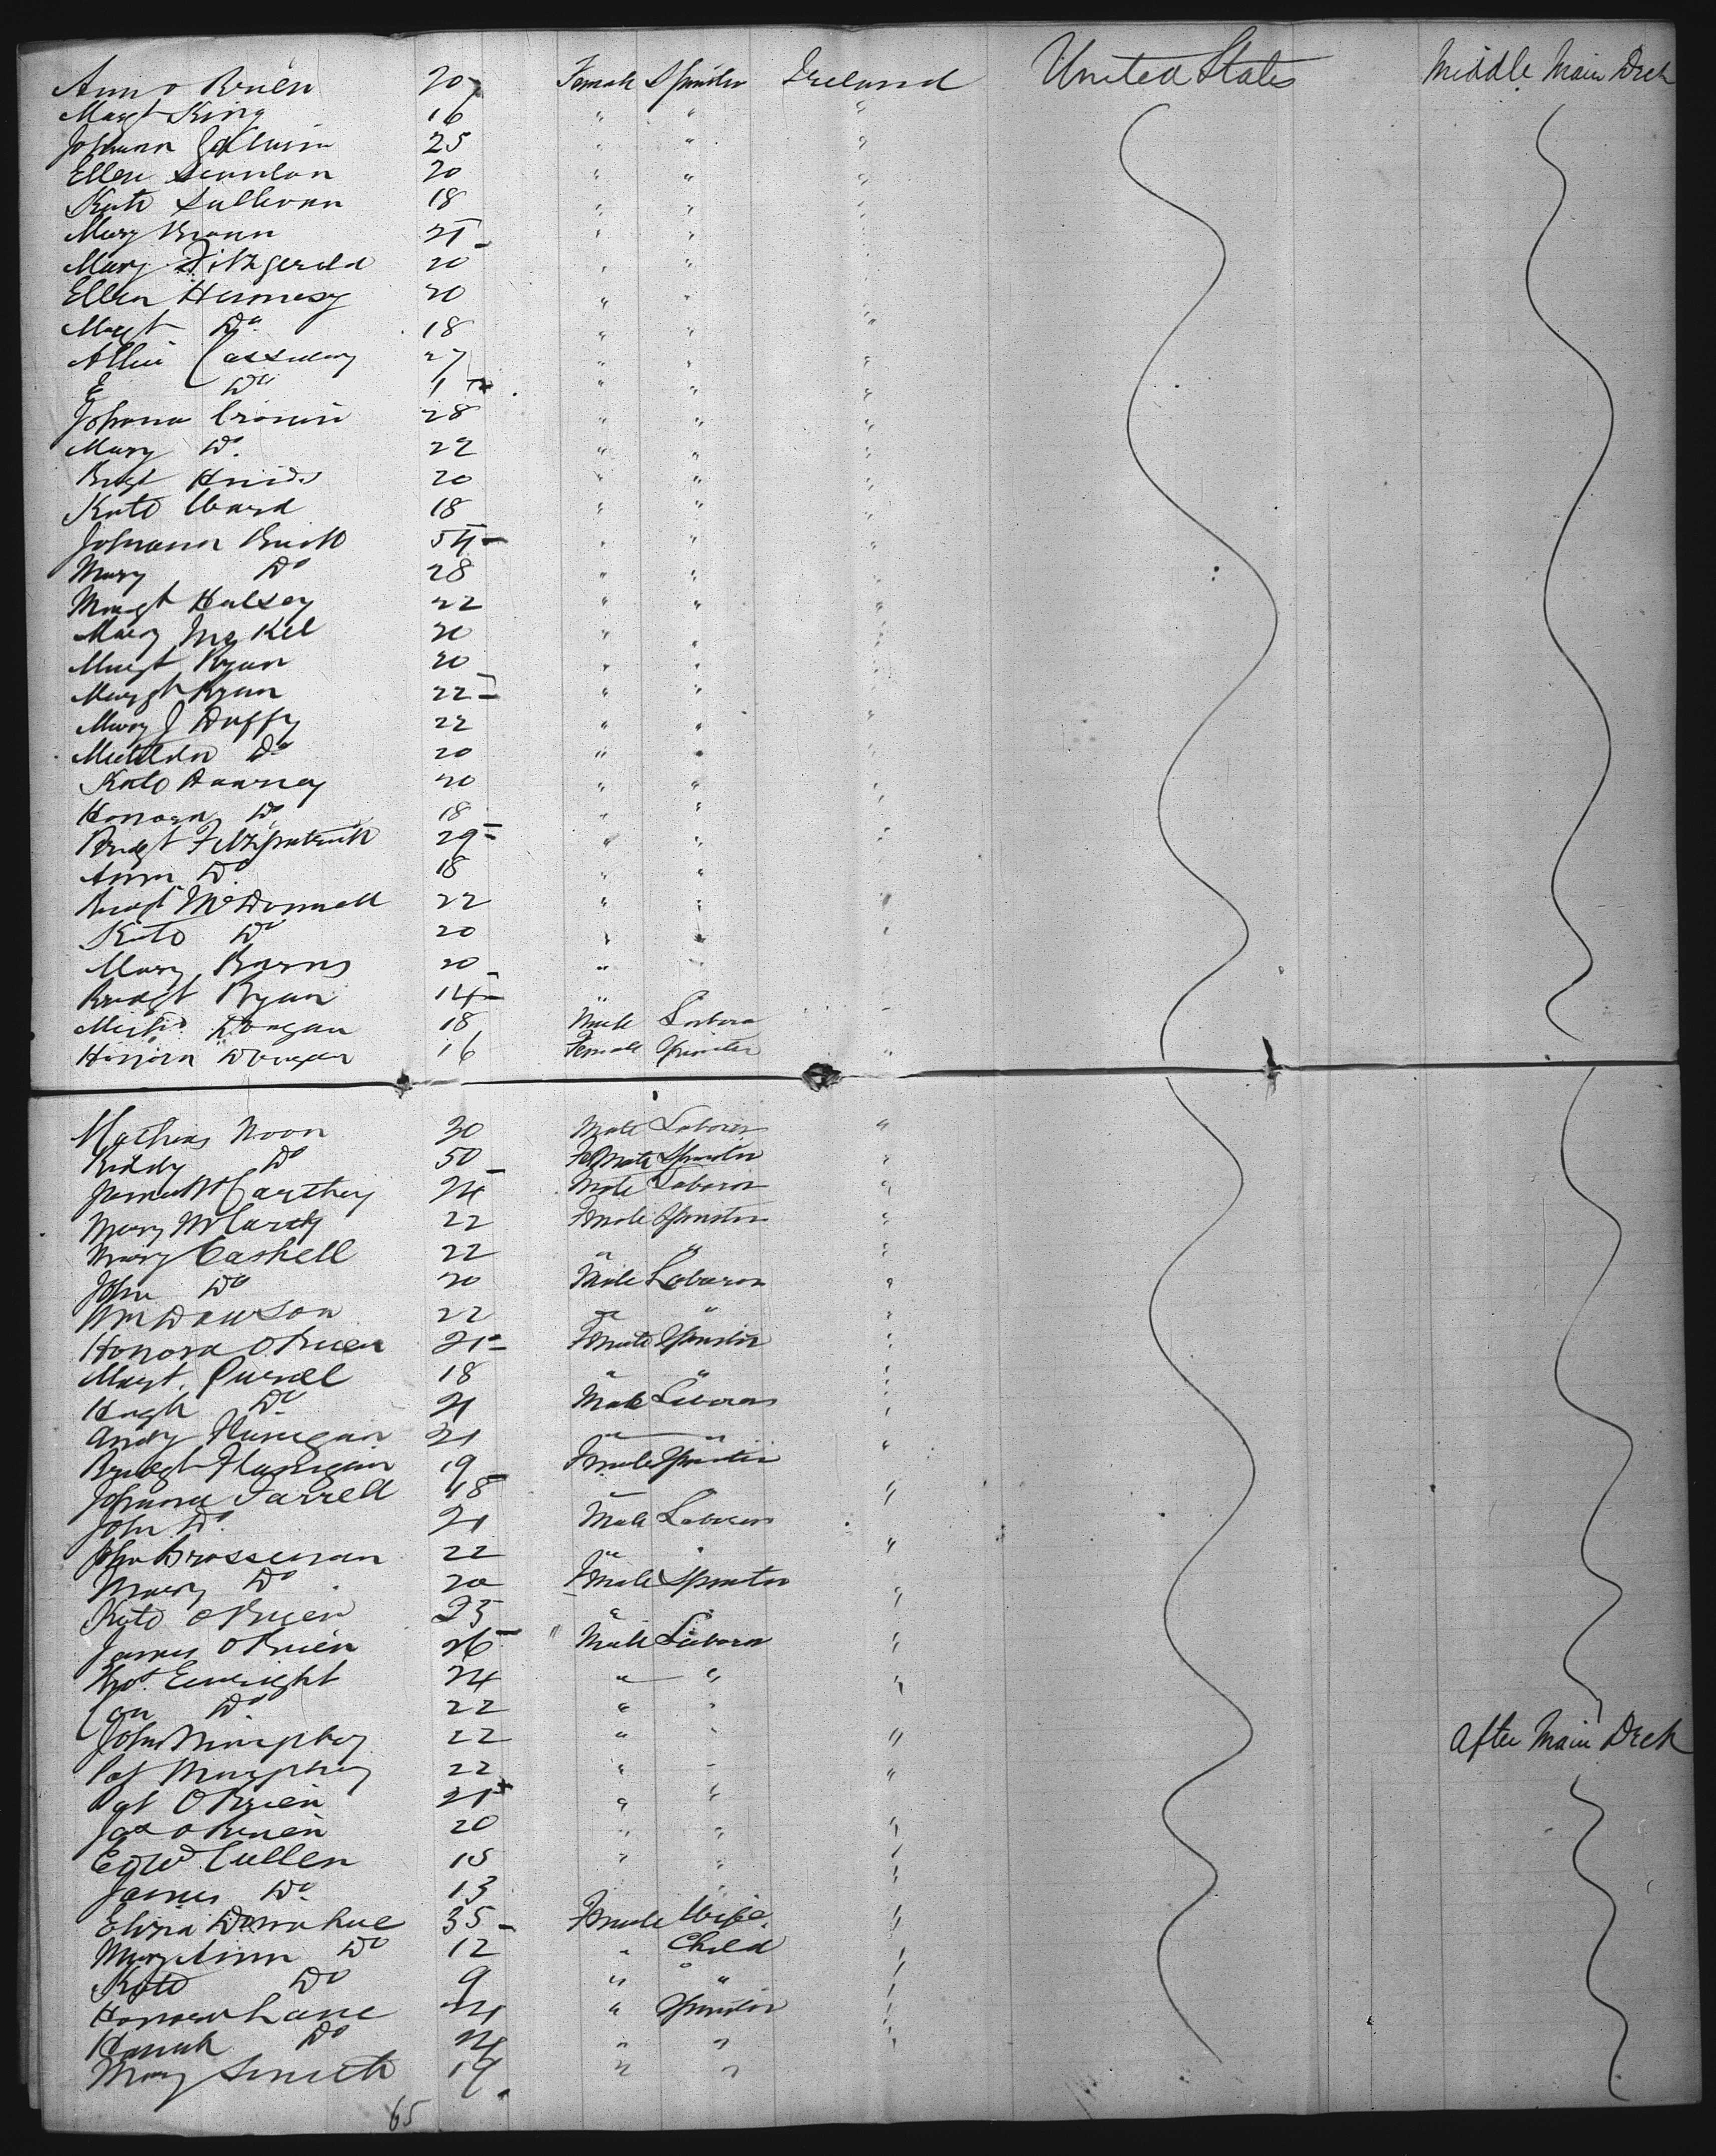 Ann O Brien 20 Female Spinster Ireland United States Middle Main Deck
Margt King 16 " " "
Johanna 25 " " "
Ellen Scanlan 20 " " "
Kate Sullivan 18 " " "
Mary Brown 21 " " "
Mary Fitzgerald 20 " " "
Ellen Hennesy 20 " " "
Margt Do 18 " " "
Cassidy 27 " " "
E Do " " "
Johana Cronin 28 " " "
Mary Do 22 " " "
Bridgt 20 " " "
Kate Ward 18 " " "
Johanna 54 " " "
Mary Do 28 " " "
Margt Halsey 22 " " "
Mary 20 " " "
Margt Ryan 20 " " "
Margt Ryan 22 " " "
Mary J Duffy 22 " " "
Matilda Do 20 " " "
Kate 20 " " "
Honora Do 18 " " "
Bridgt Fitzpatrick 29 " " "
Ann Do 18 " " "
Bridgt McDonnell 22 " " "
Kate Do 20 " " "
Mary Barns 20 " "
Bridgt Ryan 14 "
Michl Dongan 18 Male Labora "
Honora Dongan 16 Female Spinster "
Mathew Noon 30 Male Laborer "
Biddy Do 50 Female Spinster "
James McCarthey 24 Male Laborer "
Mary McCarty 22 Female Spinster "
Mary Cashell 22 " " "
John Do 20 Male Laborer "
Wm Dawson 22 " " "
Honora O Brien 21 Female Spinster "
Margt Purcel 18 " " "
Hugh Do 21 Male Laborer "
Andy Flanigan 21 " "
Bridgt Flanigan 19 Female Spinster "
Johana Farrell 18 " "
John Do 21 Male Laborer
John Brosseman 22 " " "
Mary Do 20 Female Spinster "
Kate O Brien 23 " "
James O Brien 26 " Male Laborer "
Enright 24 " " "
Con Do 22 " "
John Murphey 22 " " "
Pat Murphey 22 " " " After Main Deck
Pat O Brien 21 " "
Jas O Brien 20 " " "
Edwd Cullen 15 " " "
James Do 13 " "
Eliza Donahue 35 Female Wife "
Mary Ann Do 12 " Child "
Kate Do 9 " " "
Honora Lane 24 " Spinster "
Hanah Do " " "
Mary Smith 19 " "
65